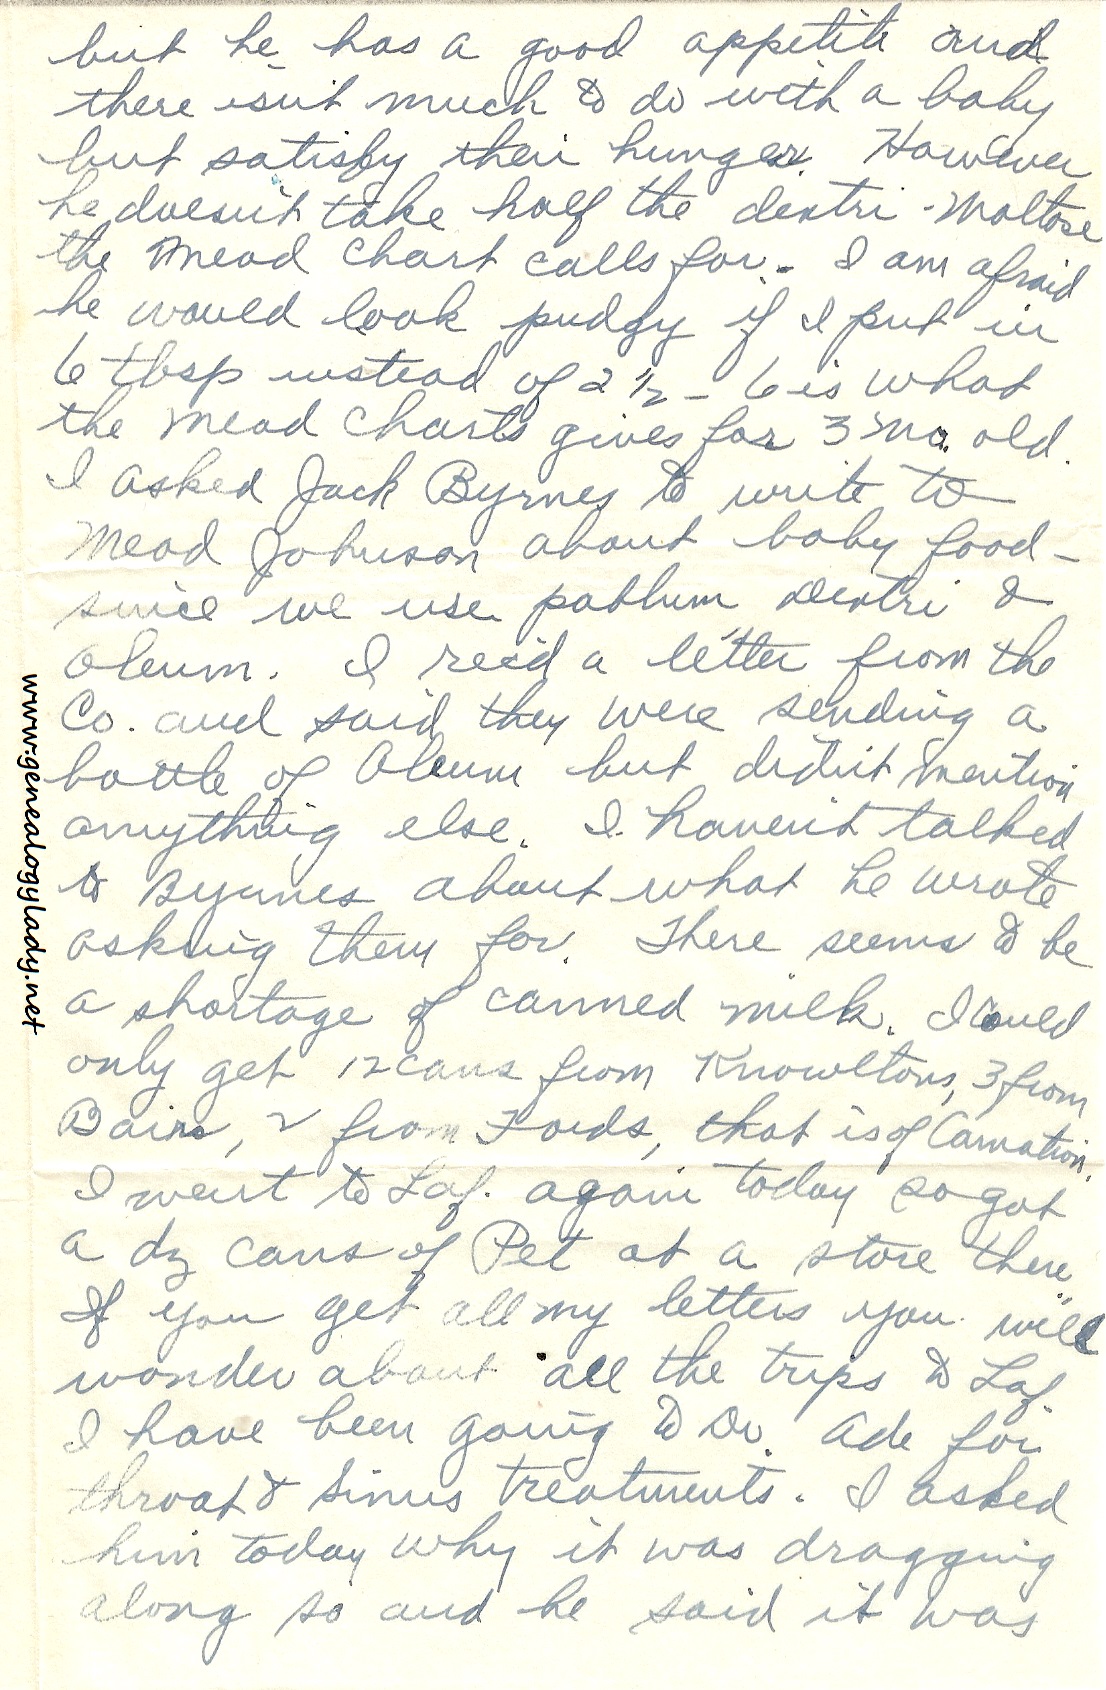 but he has a good appetite and
there isn't much to do with a baby
but satisfy their hunger. However
he doesn't take half the dextri-Maltose
the Mead chart calls for. I am afraid
he would look pudgy if I put in
6 tbsp instead of 2 1/2 - 6 is what
the Mead Charts gives for 3 mo. old.
I asked Jack Byrnes to write to
Mead Johnson about baby food -
since we use pablum Dextri &
Oleum. I rec'd a letter from the
Co. and said they were sending a
bottle of Oleum but didn't mention
anything else. I haven't talked
to Byrnes about what he wrote
asking them for. There seems to be
a shortage of canned milk. I could
only get 12 cans from Knowltons, 3 from
Bairs, 2 from Fords, that is of Carnation.
I went to Laf. again today so got
a dz cans of Pet at a store there.
If you get all my letters you will
wonder about all the trips to Laf.
I have been going to Dr. Ade for
throat & sinus treatments. I asked
him today why it was dragging
along so and he said it was
www.genealogylady.net